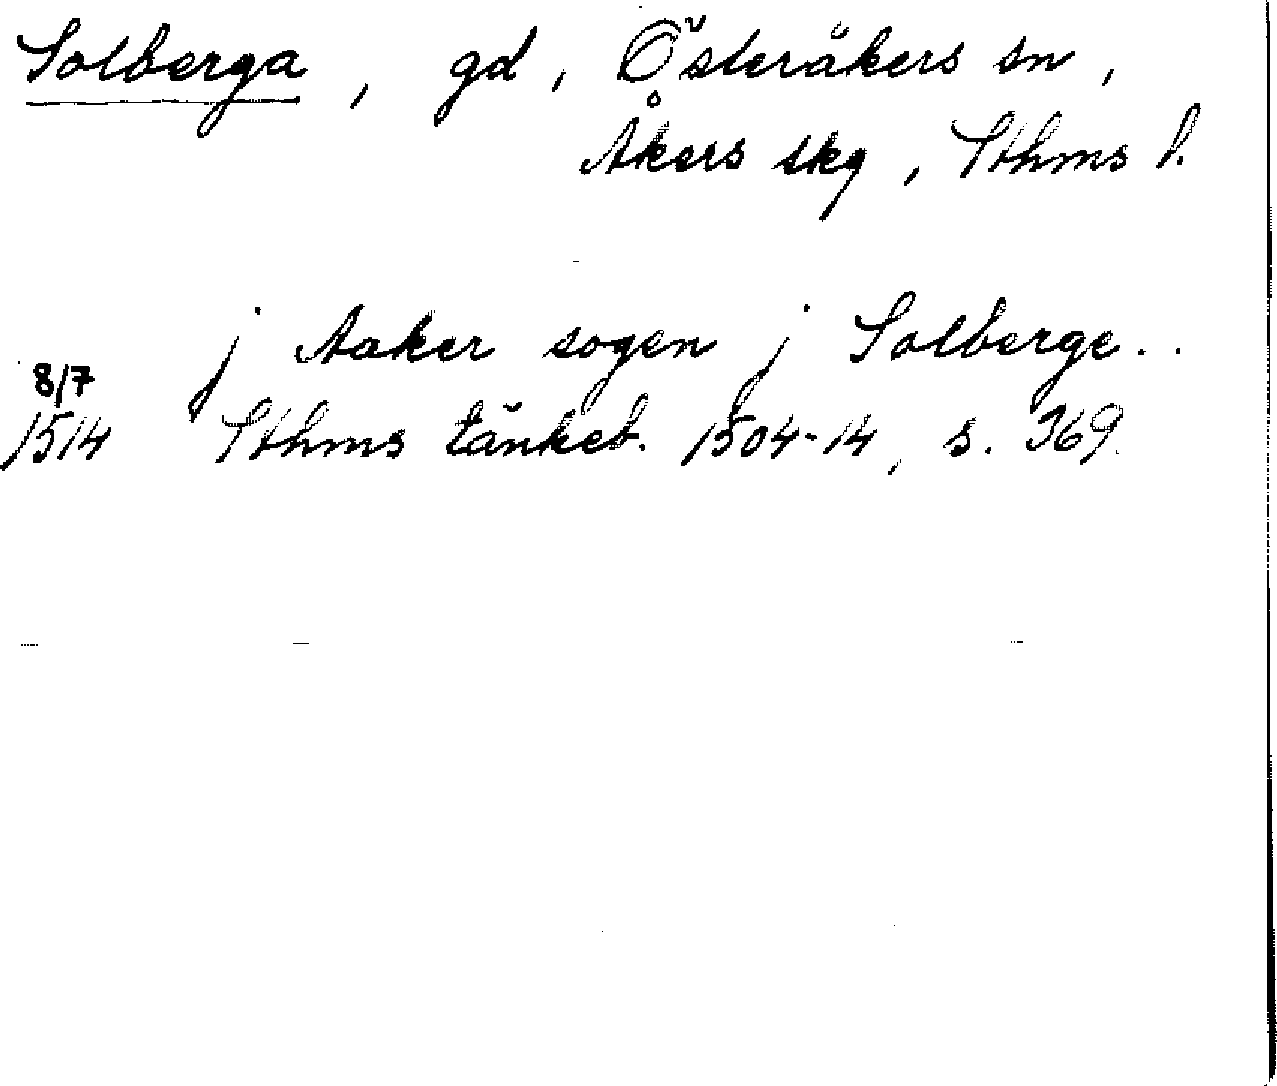 Solberga, gd, Österåkers sn,
Åkers skg, Sthms l.
j Aaker sogen j Solberge..
8/7
1514 Sthms tänkeb. 1504-14, s. 369.